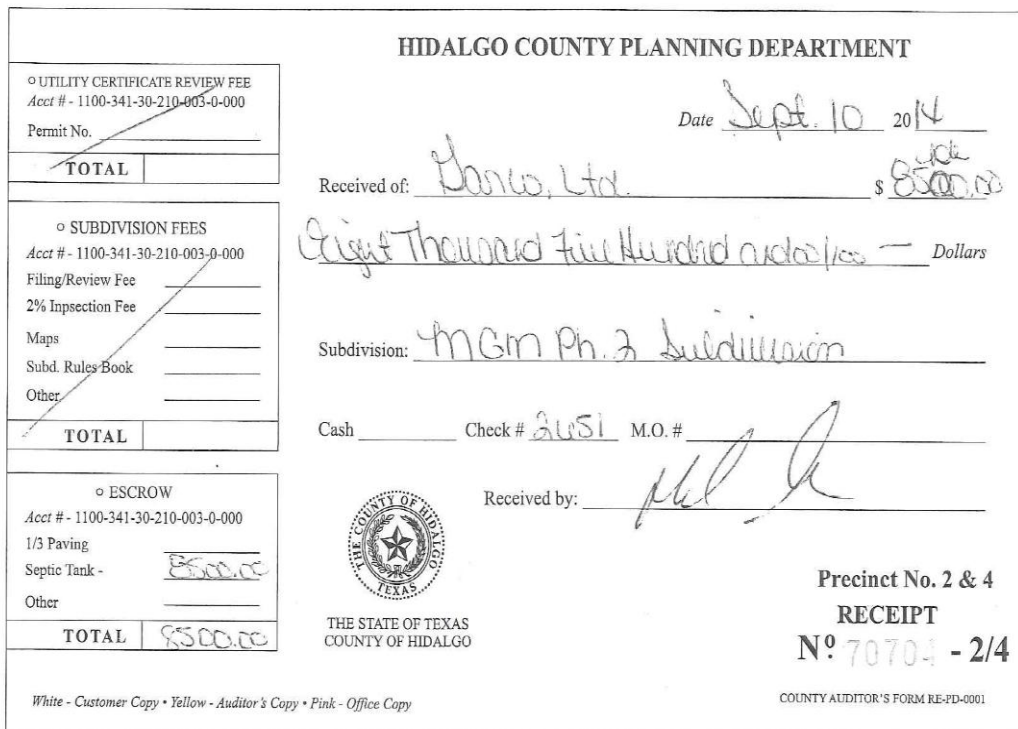 HIDALGO COUNTY PLANNING DEPARTMENT
○ UTILITY CERTIFICATE REVIEW FEE
Acct # - 1100-341-30-210-003-0-000
Permit No.
TOTAL
○ SUBDIVISION FEES
Acct # - 1100-341-30-210-003-0-000
Filing/Review Fee
2% Inpsection Fee
Maps
Subd. Rules Book
Other
TOTAL
○ ESCROW
Acct # - 1100-341-30-210-003-0-000
1/3 Paving
Septic Tank - 8500.00
Other
TOTAL 8500.00
Date Sept. 10 2014
Received of: Ltd. $ 8500.00
Eight Thousand Five Hundred and 00/100 — Dollars
Subdivision: MGM Ph. 2 Subdivision
Cash Check # 2651 M.O. #
Received by:
THE COUNTY OF HIDALGO
TEXAS
THE STATE OF TEXAS
COUNTY OF HIDALGO
Precinct No. 2 & 4
RECEIPT
Nº 70704 - 2/4
White - Customer Copy • Yellow - Auditor's Copy • Pink - Office Copy
COUNTY AUDITOR'S FORM RE-PD-0001